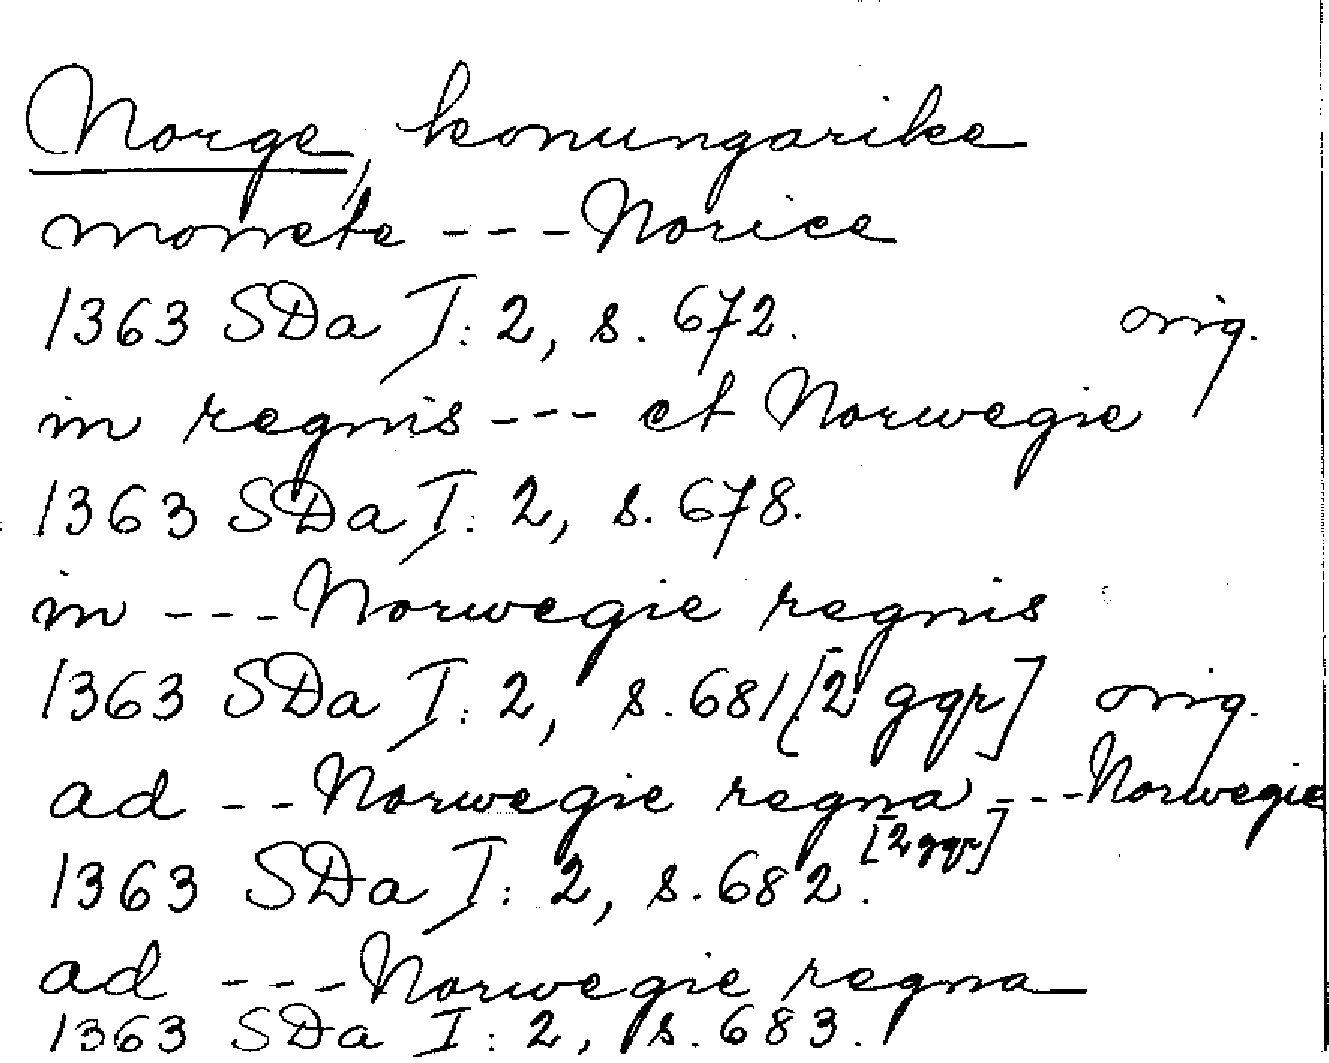 Norge, konungarike
monete --- Norice
1363 SDa I: 2, s. 672. orig.
in regnis --- et Norwegie
1363 SDa I: 2, s. 678.
in --- Norwegie regnis
1363 SDa I: 2, s. 681 [2 ggr] orig.
ad -- Norwegie regna --- Norwegie
1363 SDa I: 2, s. 682. [2 ggr]
ad --- Norwegie regna
1363 SDa I: 2, s. 683.